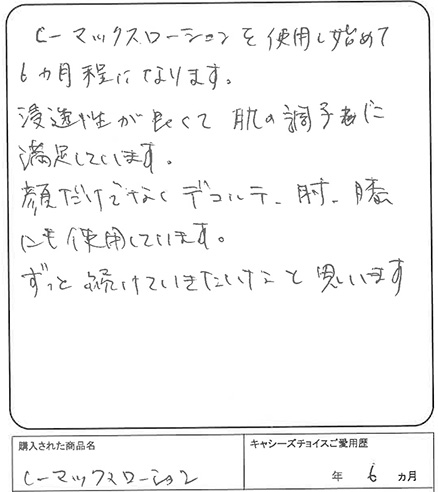 Cーマックスローションを使用し始めて
6ヵ月程になります。
浸透性が良くて肌の調子に
満足しています。
顔だけでなくデコルテ、肘、膝
にも使用しています。
ずっと続けていきたいなと思います
購入された商品名
キャシーズチョイスご愛用歴
Cーマックスローション
年 6 ヵ月